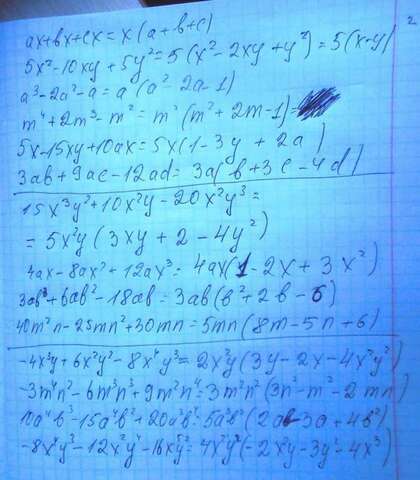 ax+bx+cx = x(a+b+c)
5x²-10xy+5y²=5(x²-2xy+y²)=5(x-y)²
a³-2a²-a=a(a²-2a-1)
m⁴+2m³-m²=m²(m²+2m-1)=
5x-15xy+10ax=5x(1-3y+2a)
3ab+9ac-12ad=3a(b+3c-4d)
15x³y²+10x²y-20x²y³=
=5x²y(3xy+2-4y²)
4ax-8ax²+12ax³=4ax(1-2x+3x²)
3ab³+6ab²-18ab=3ab(b²+2b-6)
40m²n-25mn²+30mn=5mn(8m-5n+6)
-4x³y+6x²y²-8x⁴y³=2x²y(3y-2x-4x²y²)
-3m⁴n²-6m³n³+9m²n⁴=3m²n²(3n²-m²-2mn)
10a⁴b³-15a³b²+20a²b⁴=5a²b²(2a²b-3a+4b²)
-8x⁴y³-12x²y⁴-16x⁵y²=4x²y²(-2x²y-3y²-4x³)